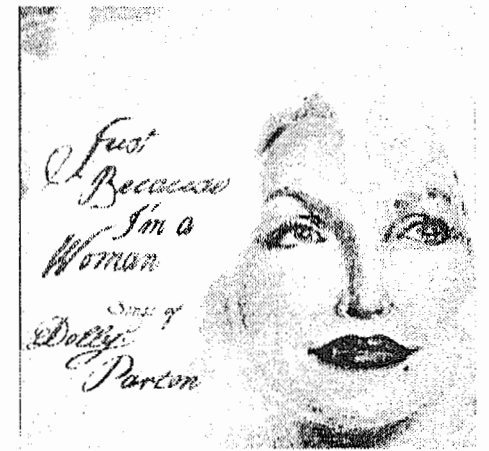 Just
Because
I'm a
Woman
Songs of
Dolly
Parton